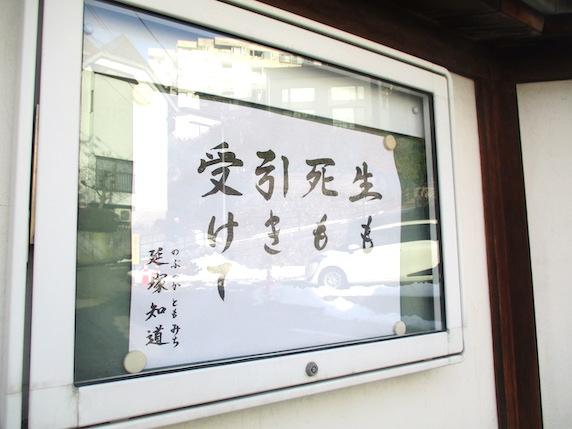 生も
死も
引き
受けて
のぶつか ともみち
延塚知道